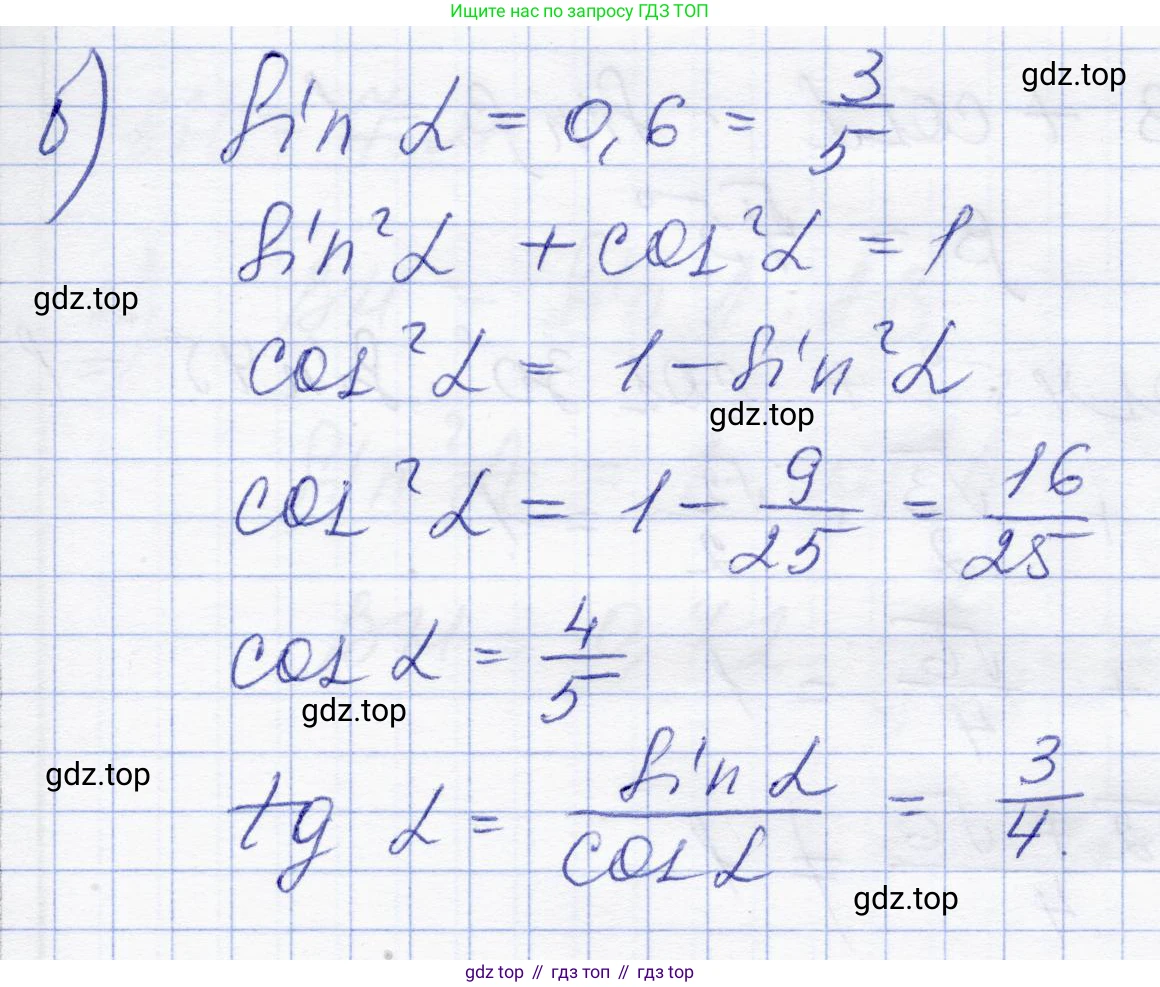 Ищите нас по запросу ГДЗ ТОП
в) sin α = 0,6 = 3/5
gdz.top
sin²α + cos²α = 1
gdz.top
cos²α = 1 - sin²α
gdz.top
cos²α = 1 - 9/25 = 16/25
cos α = 4/5
gdz.top
gdz.top
tg α = sin α/cos α = 3/4.
gdz.top
gdz top // гдз топ // gdz top